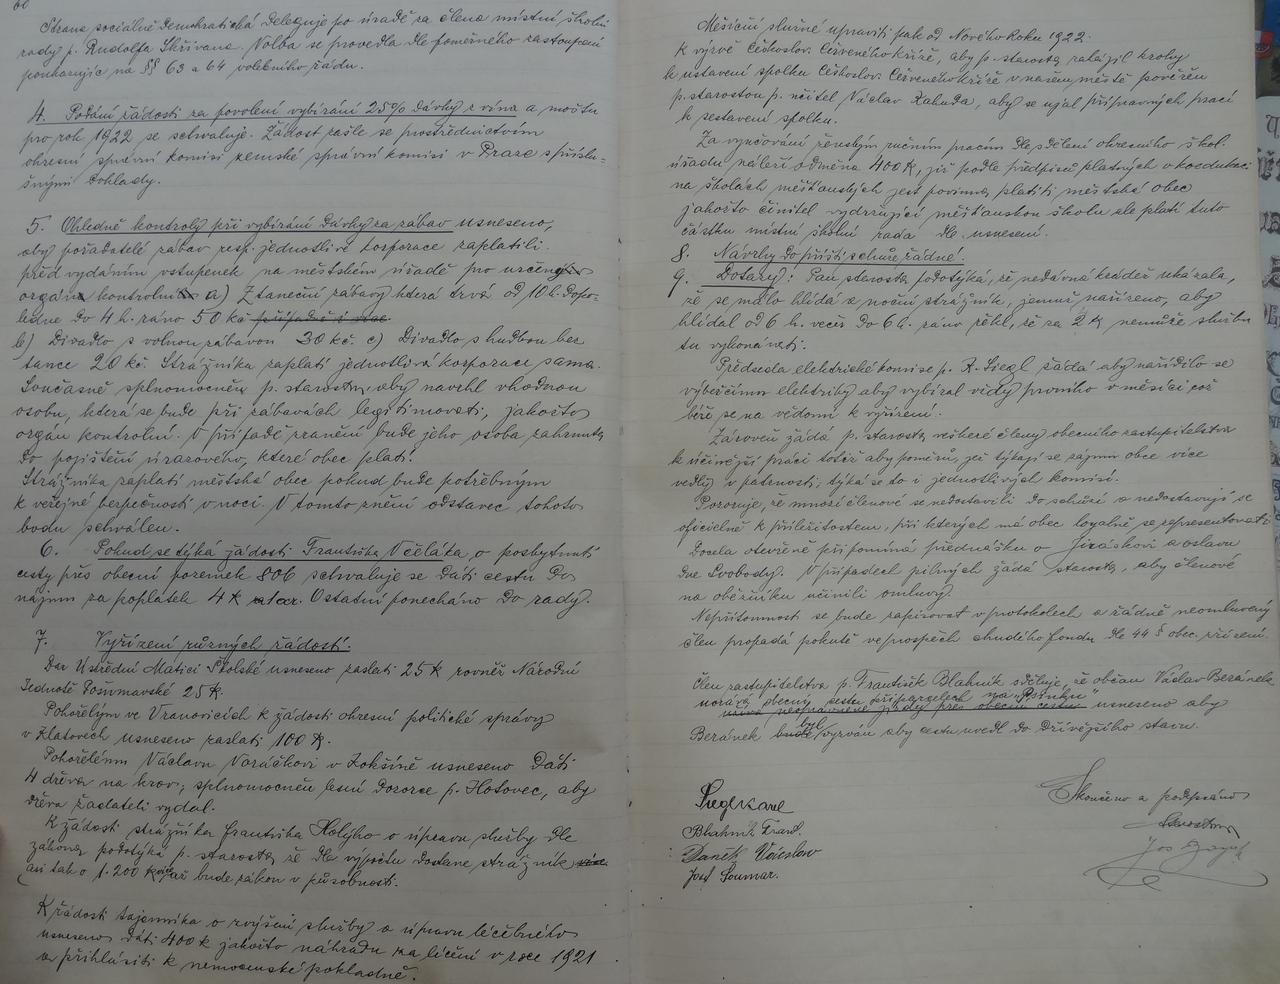 60
Strana sociálně demokratická deleguje po úradě za člena místní školní
rady p. Rudolfa Skřivana. Volba se provedla dle poměrného zastoupení
poukazujíc na §§ 63 a 64 volebního řádu.
4. Podání žádosti za povolení vybírání 25% dávky z vína a moštu
pro rok 1922 se schvaluje. Žádost zašle se prostřednictvím
okresní správní komisi zemské správní komisi v Praze s příslu-
šnými doklady.
5. Ohledně kontroly při vybírání dávky za zábav usneseno,
aby pořadatelé zábav resp. jednotlivé korporace zaplatili
před vydáním vstupenek na městském úřadě pro určený
orgán kontrolní a) Z taneční zábavy která trvá od 10 h. dopo-
ledne do 4 h. ráno 50 kč
b) Divadlo s volnou zábavou 30 kč. c) Divadlo s hudbou bez
tance 20 kč. Strážníka zaplatí jednotlivá korporace sama.
Současně splnomocněn p. starosta, aby navrhl vhodnou
osobu, která se bude při zábavách legitimovati, jakožto
orgán kontrolní. V případě zranění bude jeho osoba zahrnuta
do pojištění úrazového, které obec platí.
Strážníka zaplatí městská obec pokud bude potřebným
k veřejné bezpečnosti v noci. V tomto znění odstavec tohoto
bodu schválen.
6. Pokud se týká žádosti Františka Včeláka o poskytnutí
cesty přes obecní pozemek 806 schvaluje se dáti cestu do
nájmu za poplatek 4 K Ostatní ponecháno do rady.
7. Vyřízení různých žádostí:
Dar Ústřední Matici Školské usneseno zaslati 25 K rovněž Národní
Jednotě Pošumavské 25 K.
Pohořelým ve Vranovicích k žádosti okresní politické správy
v Klatovech usneseno zaslati 100 K.
Pohořelému Václavu Voráčkovi v Lokšíně usneseno dáti
4 dřeva na krov, splnomocněn lesní dozorce p. Hotovec, aby
dřeva žadateli vydal.
K žádosti strážníka Františka Holýho o úpravu služby dle
zákona podotýká p. starosta že dle výpočtu dostane strážník
asi tak o 1.200 K až bude zákon v působnosti.
K žádosti tajemníka o zvýšení služby a úpravu léčebného
usneseno dáti 400 K jakožto náhradu za léčení v roce 1921
a přihlásiti k nemocenské pokladně.
Měsíční služné upraviti pak od Nového Roku 1922.
K výzvě Českoslov. Červeného kříže, aby p. starosta zahájil kroky
k ustavení spolku Českoslov. Červeného kříže v našem městě pověřen
p. starostou p. učitel Václav Kahuda, aby se ujal přípravných prací
k sestavení spolku.
Za vyučování ženským ručním pracím dle sdělení okresního škol.
úřadu náleží odměna 400 K, jíž podle předpisů platných v koedukaci
na školách měšťanských jest povinna platiti městská obec
jakožto činitel vydržující měšťanskou školu ale platí tuto
částku místní školní rada dle usnesení.
8. Návrhy do příští schůze řádné.
9. Dotazy: Pan starosta podotýká, že nedávná krádež ukázala,
že se málo hlídá a noční strážník, jemuž nařízeno, aby
hlídal od 6 h. večer do 6 h. ráno řekl, že za 2 K nemůže službu
tu vykonávati.
Předseda elektrické komise p. K. Siegl žádá aby nařídilo se
výběrčímu elektriky aby vybíral vždy prvního v měsíci což
béře se na vědomí k vyřízení.
Zároveň žádá p. starosta veškeré členy obecního zastupitelstva
k účinnější práci totiž aby poměrů, jež týkají se zájmu obce více
vedly v patenosti, týká se to i jednotlivých komisí.
Pozoruje, že mnozí členové se nedostavili do schůzí a nedostavují se
oficielně k příležitostem, při kterých má obec loyalně se representovati
Docela otevřeně připomíná přednášku o Jiráskovi a oslavu
dne Svobody. V případech pilných žádá starosta, aby členové
na oběžníku učinili omluvy.
Nepřítomnost se bude zapisovat v protokolech a řádně neomluvený
člen propadá pokutě ve prospěch chudého fondu dle 44 § obec. zřízení.
Člen zastupitelstva p. František Blahník sděluje, že občan Václav Beránek
usneseno aby
Beránek byl vyzván aby cestu uvedl do dřívějšího stavu.
Skončeno a podepsáno
Siegl Karel
Blahník Frant.
Daněk Věroslav
Josef Soumar.
starosta